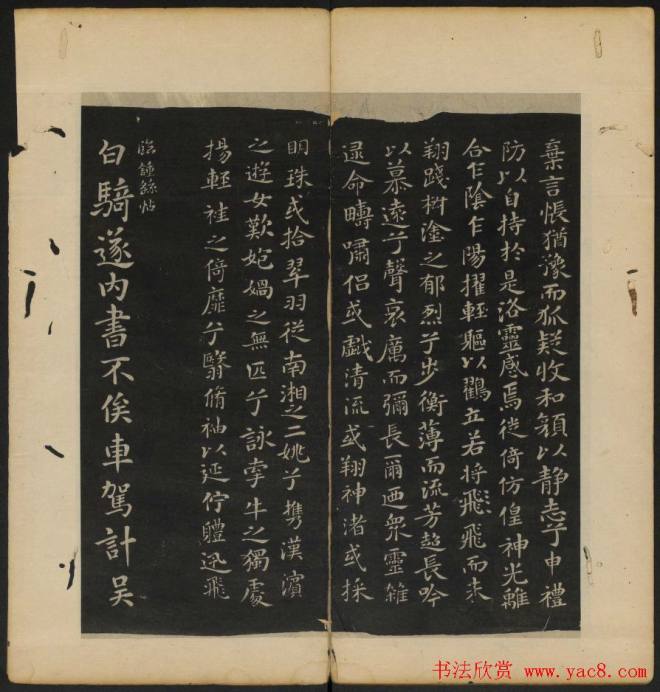 棄言悵猶豫而狐疑收和顏以静志兮申禮
防以自持於是洛靈感焉徙倚仿偟神光離
合乍陰乍陽擢輕軀以鶴立若将飛飛而未
翔踐椒塗之郁烈兮步衡薄而流芳超長吟
以慕遠兮聲哀厲而彌長爾迺衆靈雜
遝命疇嘯侣或戲清流或翔神渚或採
明珠或拾翠羽從南湘之二姚兮攜漢濱
之遊女歎匏媧之無匹兮詠牽牛之獨處
揚輕袿之倚靡兮翳脩袖以延佇軆迅飛
臨鍾繇帖
白騎遂内書不俟車駕計吴
书法欣赏 www.yac8.com